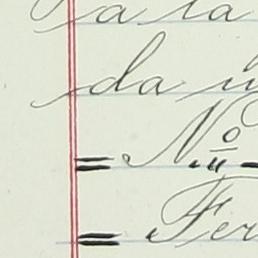 a la
da
= Nº
= Fer